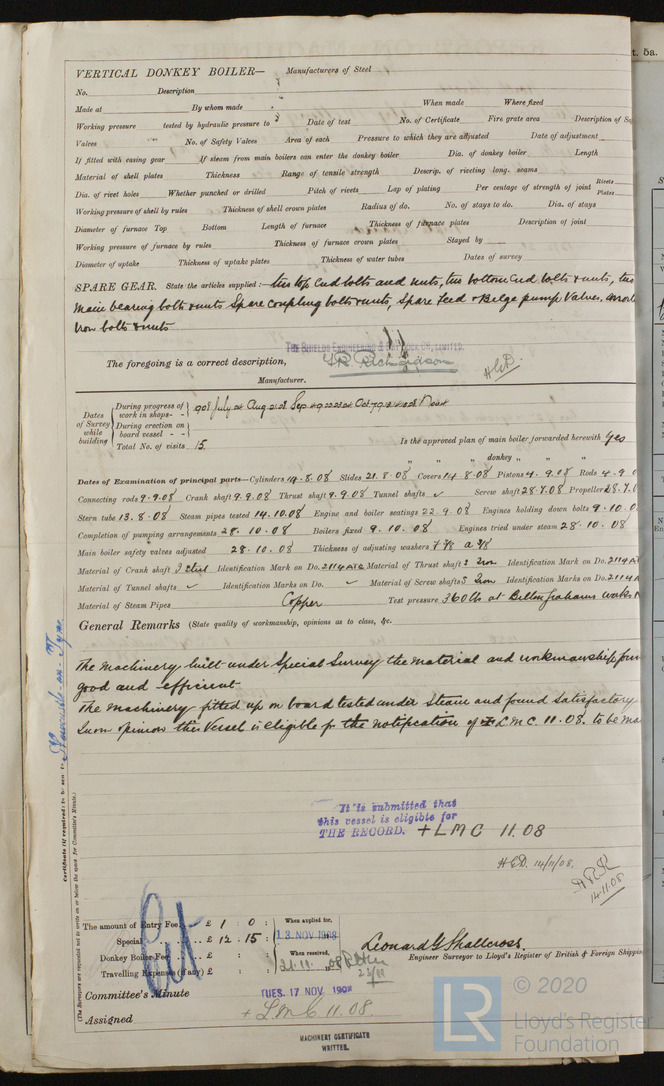 t. 5a.
VERTICAL DONKEY BOILER— Manufacturers of Steel
No. Description
Made at By whom made When made Where fixed
Working pressure tested by hydraulic pressure to Date of test No. of Certificate Fire grate area Description of Sa
Valves No. of Safety Valves Area of each Pressure to which they are adjusted Date of adjustment
If fitted with easing gear If steam from main boilers can enter the donkey boiler Dia. of donkey boiler Length
Material of shell plates Thickness Range of tensile strength Descrip. of riveting long. seams
Dia. of rivet holes Whether punched or drilled Pitch of rivets Lap of plating Per centage of strength of joint Rivets Plates
Working pressure of shell by rules Thickness of shell crown plates Radius of do. No. of stays to do. Dia. of stays
Diameter of furnace Top Bottom Length of furnace Thickness of furnace plates Description of joint
Working pressure of furnace by rules Thickness of furnace crown plates Stayed by
Diameter of uptake Thickness of uptake plates Thickness of water tubes Dates of survey
SPARE GEAR. State the articles supplied:— two top End bolts and nuts, two bottom End bolts & nuts, two
main bearing bolts & nuts Spare coupling bolts & nuts, Spare Feed & Belge pump Valves.
Iron bolts & nuts
THE SHIELDS ENGINEERING & DRY DOCK CO., LIMITED.
The foregoing is a correct description, Richardson
Manufacturer.
Dates of Survey while building
During progress of work in shops- - 1908 July Aug Sep Oct Nov
During erection on board vessel - -
Total No. of visits 15. Is the approved plan of main boiler forwarded herewith Yes
" " " donkey " " "
Dates of Examination of principal parts—Cylinders 14.8.08 Slides 21.8.08 Covers 14.8.08 Pistons 4.9.08 Rods 4.9.0
Connecting rods 9.9.08 Crank shaft 9.9.08 Thrust shaft 9.9.08 Tunnel shafts ✓ Screw shaft 28.7.08 Propeller 28.7.0
Stern tube 13.8.08 Steam pipes tested 14.10.08 Engine and boiler seatings 22.9.08 Engines holding down bolts 9.10.0
Completion of pumping arrangements 28.10.08 Boilers fixed 9.10.08 Engines tried under steam 28.10.08
Main boiler safety valves adjusted 28.10.08 Thickness of adjusting washers
Material of Crank shaft Identification Mark on Do. Material of Thrust shaft Iron Identification Mark on Do.
Material of Tunnel shafts ✓ Identification Marks on Do. ✓ Material of Screw shafts Iron Identification Marks on Do.
Material of Steam Pipes Copper Test pressure 360 lbs at
General Remarks (State quality of workmanship, opinions as to class, &c.
The machinery built under Special Survey the material and workmanship foun
good and efficient
The machinery fitted up on board tested under Steam and found satisfactory
In our opinion this Vessel is eligible for the notification of LMC. 11.08. to be ma
Newcastle-on-Tyne
Certificate (if required) to be sent to
(The Surveyors are requested not to write on or below the space for Committee's Minute.)
It is submitted that
this vessel is eligible for
THE RECORD. + LMC 11.08
14/11/08.
14.11.08
The amount of Entry Fee. . £ 1 : 0 : When applied for,
Special . . . . £ 12 : 15 : 13 NOV 1908
Donkey Boiler Fee . . . £ : : When received,
Travelling Expenses (if any) £ : : 21.11.08
Leonard G Shallcross
Engineer Surveyor to Lloyd's Register of British & Foreign Shippin
Committee's Minute TUES. 17 NOV. 1908
Assigned + LMC 11.08.
MACHINERY CERTIFICATE
WRITTEN.
LR © 2020
Lloyd's Register
Foundation